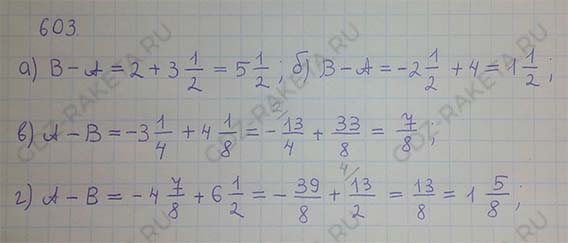 603.
а) B - A = 2 + 3 1/2 = 5 1/2; б) B - A = -2 1/2 + 4 = 1 1/2;
в) A - B = -3 1/4 + 4 1/8 = - 2/ 13/4 + 33/8 = 7/8;
г) A - B = -4 7/8 + 6 1/2 = - 39/8 + 4/ 13/2 = 13/8 = 1 5/8;
GDZ-RAKETA.RU